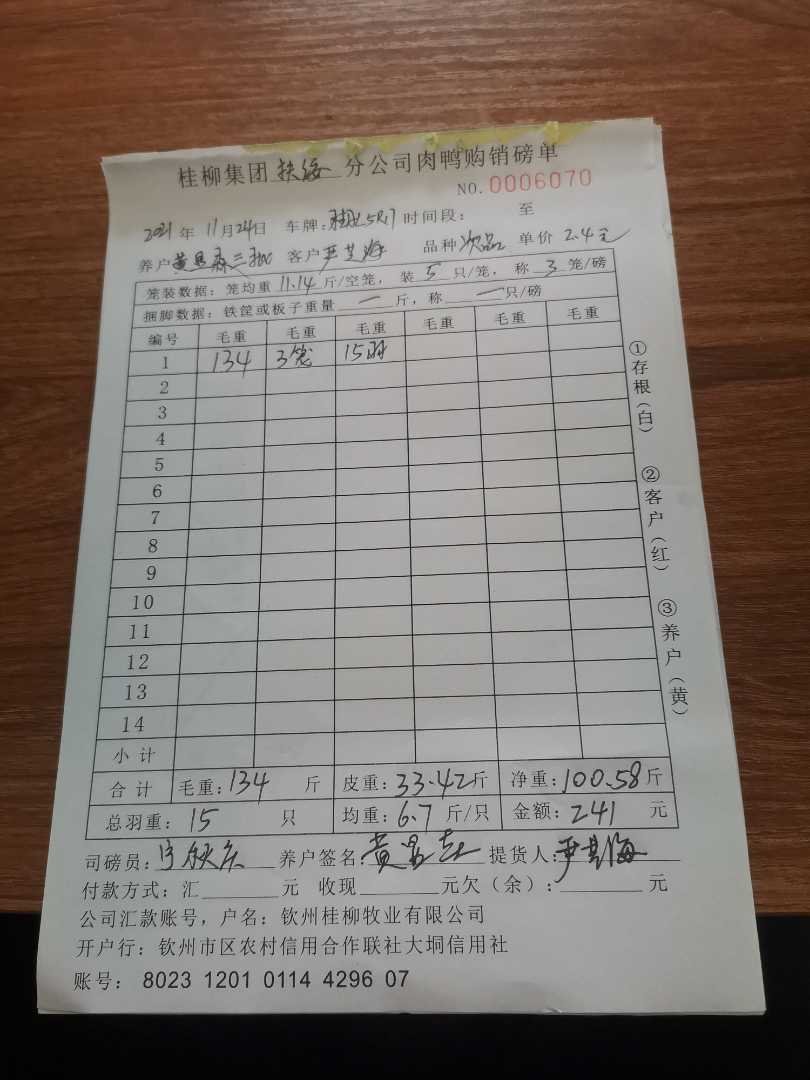 桂柳集团 扶绥 分公司肉鸭购销磅单
NO. 0006070
2021年 11月24日 车牌: 时间段: 至
养户 黄 三 客户 严其海 品种 次品 单价 2.4元
笼装数据: 笼均重 11.14 斤/空笼, 装 5 只/笼, 称 3 笼/磅
捆脚数据: 铁筐或板子重量 一 斤, 称 一 只/磅
编号 毛重 毛重 毛重 毛重 毛重 毛重
1 134 3笼 15羽
2
3
4
5
6
7
8
9
10
11
12
13
14
小计
合计 毛重: 134 斤 皮重: 33.42斤 净重: 100.58斤
总羽重: 15 只 均重: 6.7 斤/只 金额: 241 元
司磅员: 养户签名: 黄 提货人: 严其海
付款方式: 汇 元 收现 元欠(余): 元
公司汇款账号, 户名: 钦州桂柳牧业有限公司
开户行: 钦州市区农村信用合作联社大垌信用社
账号: 8023 1201 0114 4296 07
①存根(白)
②客户(红)
③养户(黄)